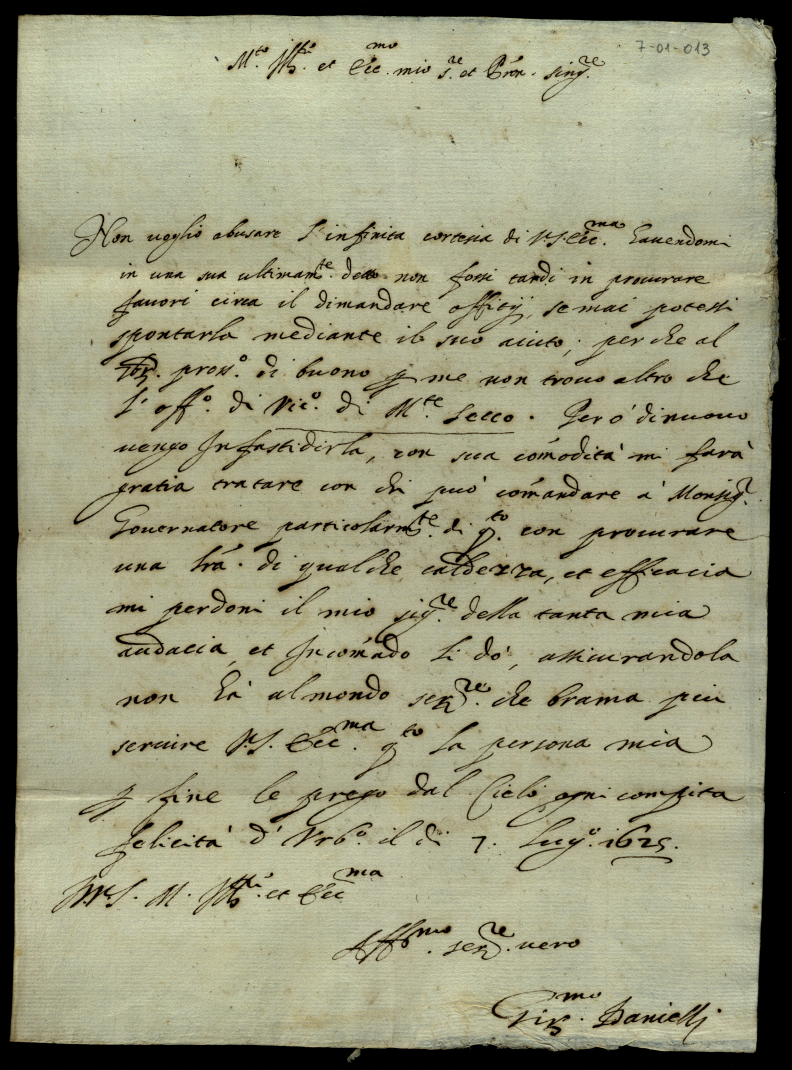 7-01-013
M.to Ill.re et Ecc.mo mio s.re et P'ron. sing.re
Non voglio abusare l'infinita cortesia di V.S. Ecc.ma havendomi
in una sua ultimam.te detto non fossi tardi in procurare
favori circa il dimandare offitij, se mai potessi
spontarla mediante il suo aiuto; perche al
pross.o di buono p me non trovo altro che
l'off.o di Vic.o di M.te Secco. Però di nuovo
vengo Infastidirla, con sua comodità mi farà
gratia tratare con chi può comandare à Monsig.r
Governatore particolarm.te di q.to con procurare
una l'ra. di qualche caldezza, et efficacia
mi perdoni il mio sig.re della tanta mia
audacia, et Incomado li dò, assicurandola
non hà al mondo ser.re che brama più
servire V.S. Ecc.ma q.to la persona mia
p fine le prego dal Cielo ogni compita
felicità d'Urb.o il di 7. lug.o 1625.
Di V.S. M. Ill.re et Ecc.ma
Aff.mo ser.re vero
Gir.mo Danielli